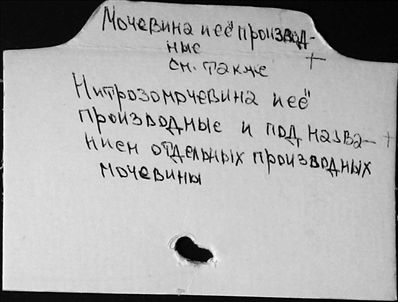 Мочевина и её производ-
ные
см. также
Нитрозомочевина и её
производные и под назва-
нием отдельных производных
мочевины